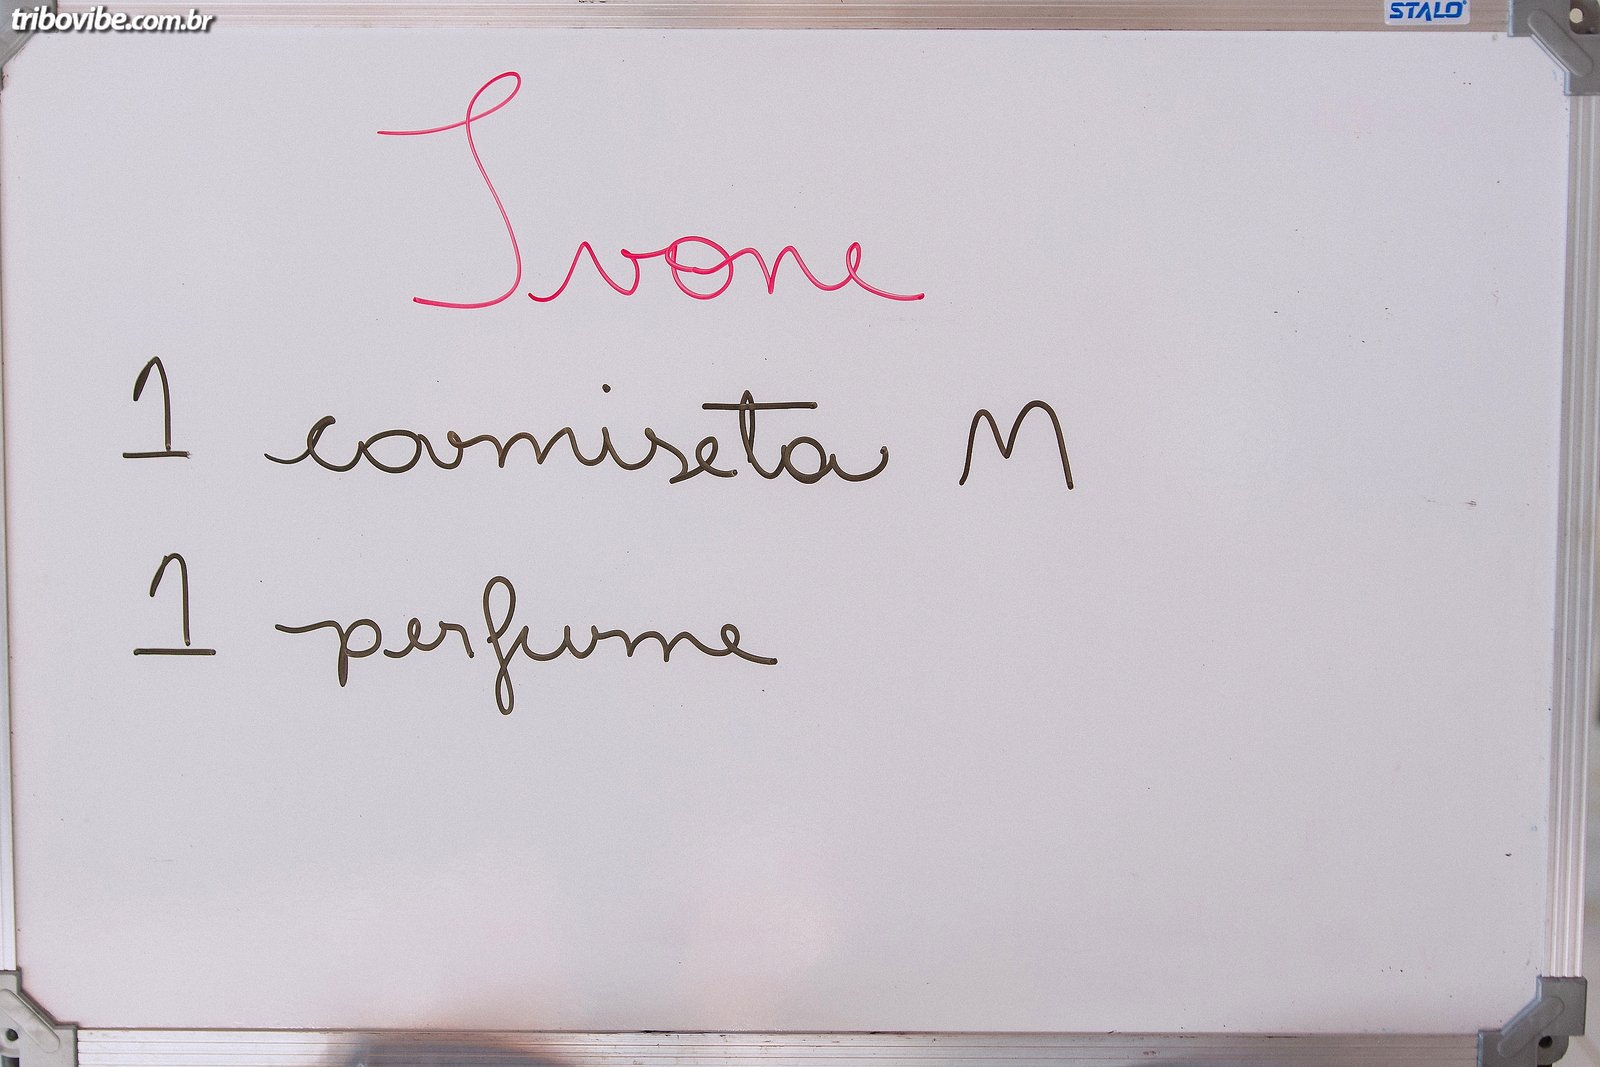 tribovibe.com.br
STALO
Ivone
1 camiseta M
1 perfume